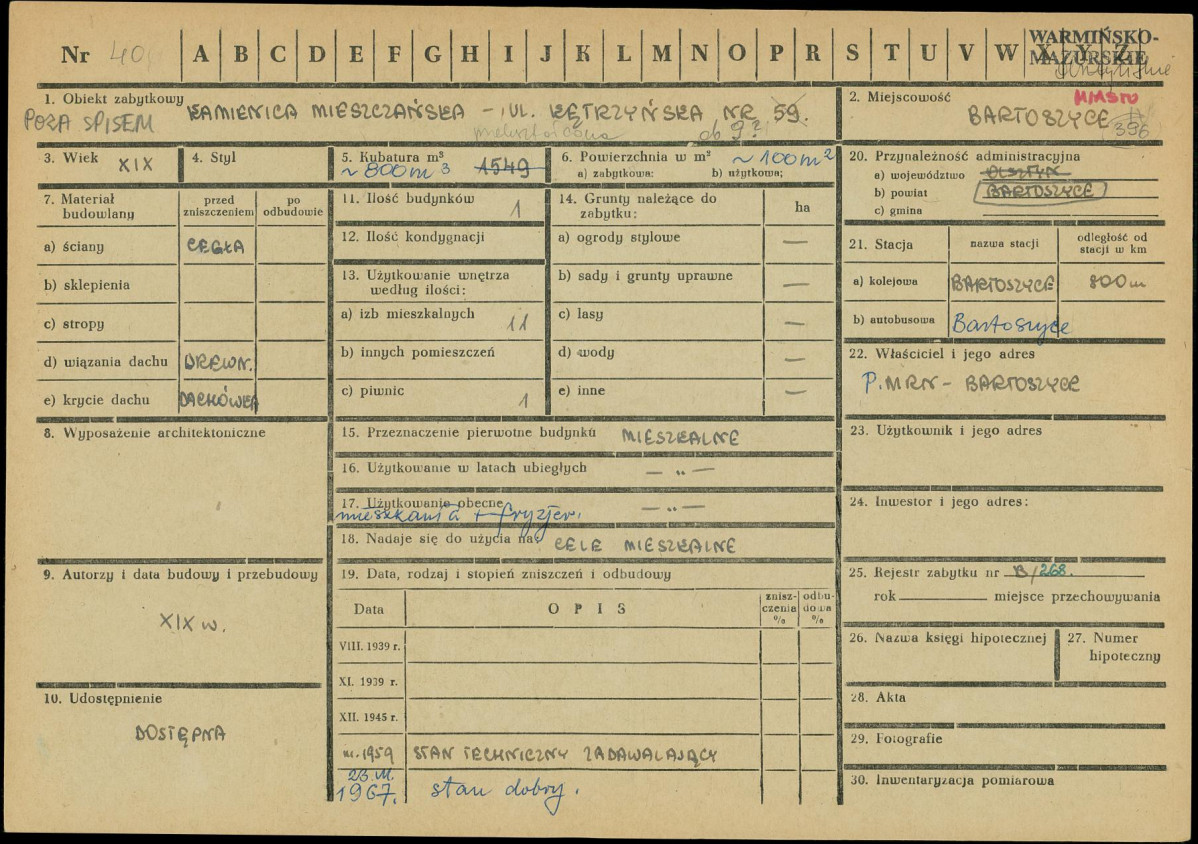 Nr 40
A B C D E F G H I J K L M N O P R S T U V W X Y Z
WARMIŃSKO-
MAZURSKIE
1. Obiekt zabytkowy KAMIENICA MIESZCZAŃSKA – UL. KĘTRZYŃSKA NR 59.
POZA SPISEM
ob 9?
2. Miejscowość MIASTO
BARTOSZYCE
396
3. Wiek XIX
4. Styl
5. Kubatura m³ 1549
~ 800 m³
6. Powierzchnia w m² ~ 100 m²
a) zabytkowa: b) użytkowa;
7. Materiał budowlany
przed zniszczeniem
po odbudowie
a) ściany CEGŁA
b) sklepienia
c) stropy
d) wiązania dachu DREWN.
e) krycie dachu DACHÓWKA
8. Wyposażenie architektoniczne
9. Autorzy i data budowy i przebudowy
XIX w.
10. Udostępnienie
DOSTĘPNA
11. Ilość budynków 1
12. Ilość kondygnacji
13. Użytkowanie wnętrza
według ilości:
a) izb mieszkalnych 11
b) innych pomieszczeń
c) piwnic 1
14. Grunty należące do
zabytku: ha
a) ogrody stylowe —
b) sady i grunty uprawne —
c) lasy —
d) wody —
e) inne —
15. Przeznaczenie pierwotne budynku MIESZKALNE
16. Użytkowanie w latach ubiegłych — „ —
17. Użytkowanie obecne — „ —
mieszkania + fryzjer.
18. Nadaje się do użycia na: CELE MIESZKALNE
19. Data, rodzaj i stopień zniszczeń i odbudowy
Data OPIS
znisz-
czenia
%
odbu-
dowa
%
VIII. 1939 r.
XI. 1939 r.
XII. 1945 r.
1959 STAN TECHNICZNY ZADAWALAJĄCY
1967. stan dobry.
20. Przynależność administracyjna
a) województwo OLSZTYN
b) powiat BARTOSZYCE
c) gmina
21. Stacja
nazwa stacji
odległość od
stacji w km
a) kolejowa BARTOSZYCE 800 m
b) autobusowa Bartoszyce
22. Właściciel i jego adres
P.MRN – BARTOSZYCE
23. Użytkownik i jego adres
24. Inwestor i jego adres:
25. Rejestr zabytku nr B/268.
rok miejsce przechowywania
26. Nazwa księgi hipotecznej
27. Numer
hipoteczny
28. Akta
29. Fotografie
30. Inwentaryzacja pomiarowa